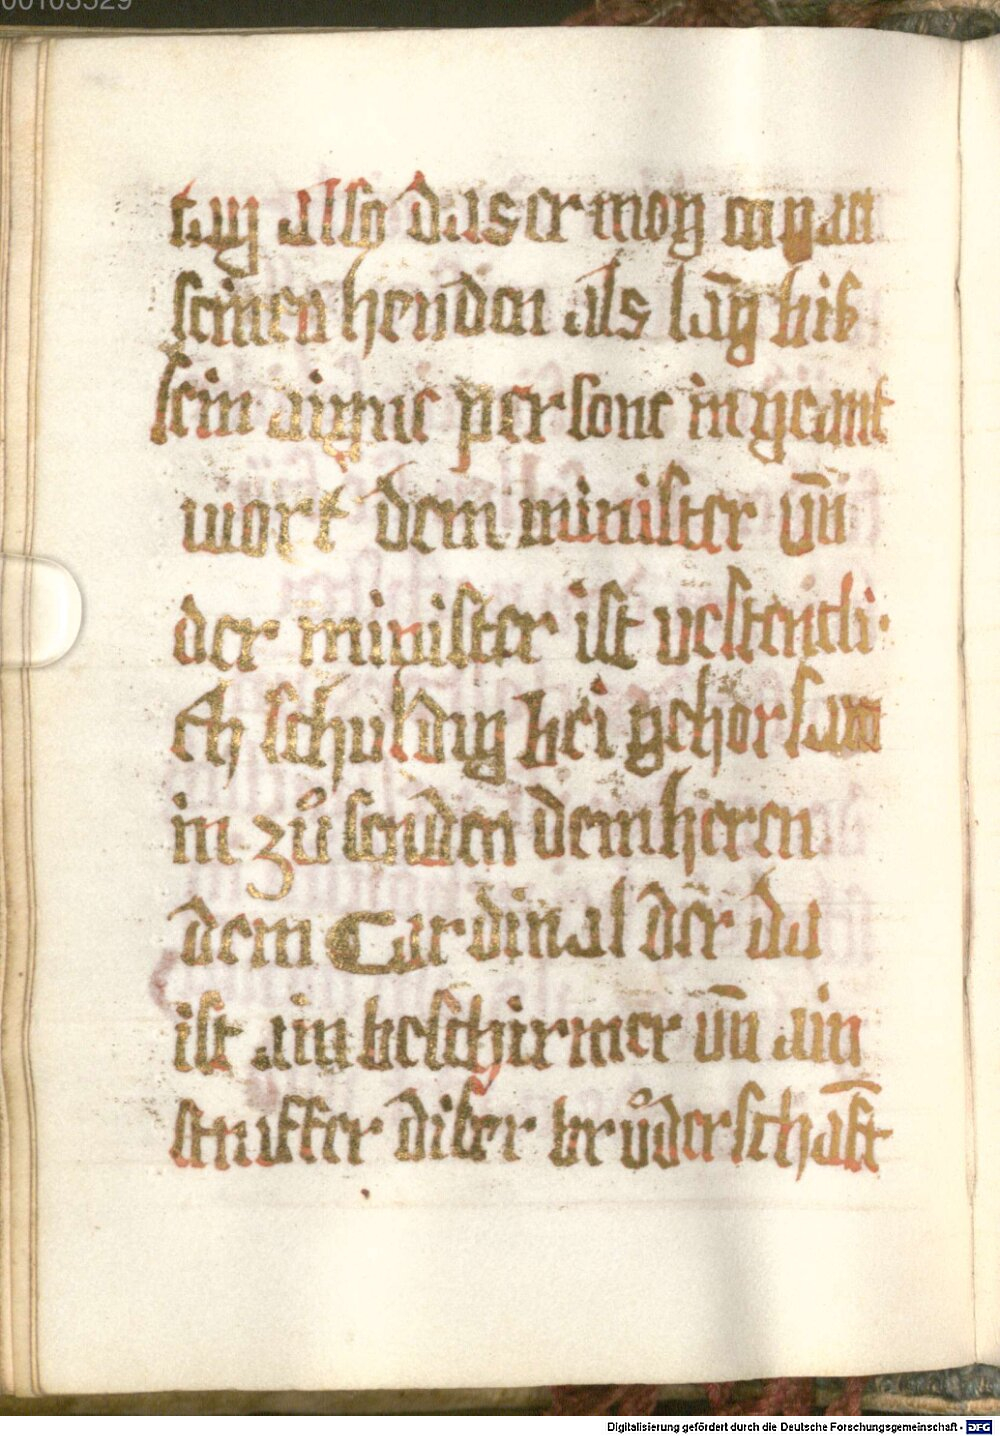 00103529
tag also das er mog
seinen henden als lāg bis
sein aigne persone in geant
wort dem minister vn̄
der minister ist vestencli·
ch schuldig bei gehorsam
in zů senden dem heren
dem Cardinal der da
ist ain beschirmer vn̄ ain
straffer diser brůderschaft
Digitalisierung gefördert durch die Deutsche Forschungsgemeinschaft - DFG